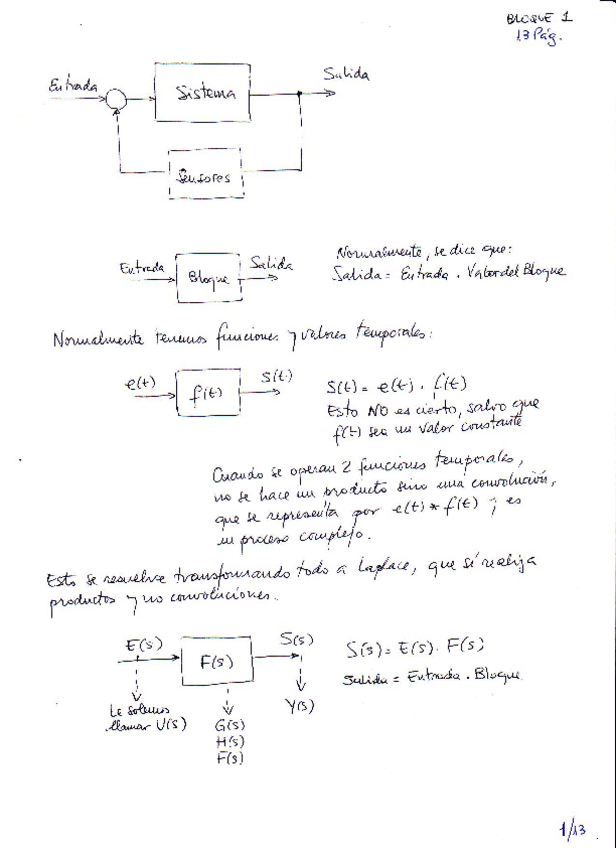 BLOQUE 1
13 Pág.
Entrada
Sistema
Salida
Sensores
Entrada
Bloque
Salida
Normalmente, se dice que:
Salida = Entrada . Valor del Bloque
Normalmente tenemos funciones y valores temporales:
e(t)
f(t)
S(t)
S(t) = e(t) . f(t)
Esto NO es cierto, salvo que
f(t) sea un valor constante
Cuando se operan 2 funciones temporales,
no se hace un producto sino una convolución,
que se representa por e(t) * f(t) y es
un proceso complejo.
Esto se resuelve transformando todo a Laplace, que sí realiza
productos y no convoluciones.
E(s)
F(s)
S(s)
S(s) = E(s) . F(s)
Salida = Entrada . Bloque
Le solemos
llamar U(s)
G(s)
H(s)
F(s)
Y(s)
1/13